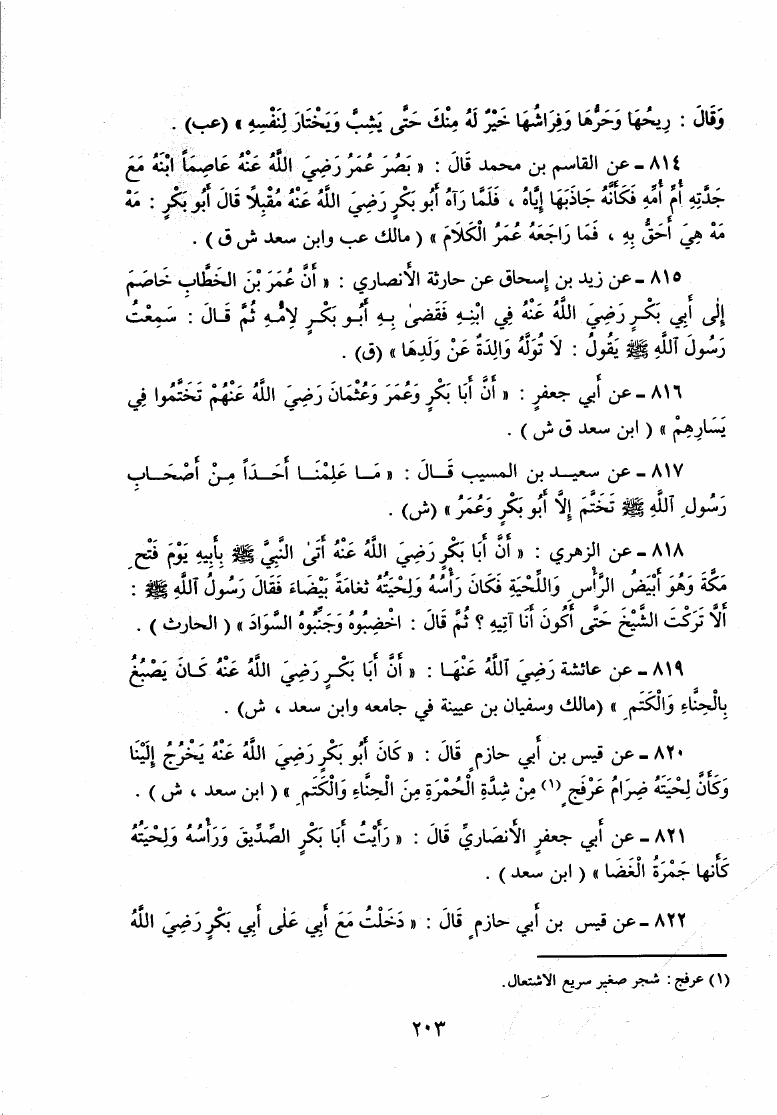 وَقَالَ : رِيحُهَا وَحَرُّهَا وَفِرَاشُهَا خَيْرٌ لَهُ مِنْكَ حَتَّى يَشِبَّ وَيَخْتَارَ لِنَفْسِهِ » (عب) .
٨١٤ ـ عن القاسم بن محمد قَالَ : « بَصُرَ عُمَرُ رَضِيَ اللَّهُ عَنْهُ عَاصِمَاً ابْنَهُ مَعَ
جَدَّتِهِ أُمِّ أُمِّهِ فَكَأَنَّهُ جَاذَبَهَا إِيَّاهُ ، فَلَمَّا رَآهُ أَبُو بَكْرٍ رَضِيَ اللَّهُ عَنْهُ مُقْبِلًا قَالَ أَبُو بَكْرٍ : مَهْ
مَهْ هِيَ أَحَقُّ بِهِ ، فَمَا رَاجَعَهُ عُمَرُ الْكَلَامَ » ( مالك عب وابن سعد ش ق ) .
٨١٥ ـ عن زيد بن إسحاق عن حارثة الأنصاري : « أَنَّ عُمَرَ بْنَ الخَطَّابِ خَاصَمَ
إِلَى أَبِي بَكْرٍ رَضِيَ اللَّهُ عَنْهُ فِي ابْنِهِ فَقَضىٰ بِهِ أَبُو بَكْرٍ لِأُمِّهِ ثُمَّ قَالَ : سَمِعْتُ
رَسُولَ آللَّهِ ﷺ يَقُولُ : لَا تُوَلَّهُ وَالِدَةٌ عَنْ وَلَدِهَا » (ق) .
٨١٦ ـ عن أبي جعفرٍ : « أَنَّ أَبَا بَكْرٍ وَعُمَرَ وَعُثْمَانَ رَضِيَ اللَّهُ عَنْهُمْ تَخَتَّمُوا فِي
يَسَارِهِمْ » ( ابن سعد ق ش ) .
٨١٧ ـ عن سعيد بن المسيب قَالَ : « مَا عَلِمْنَا أَحَدَاً مِنْ أَصْحَابِ
رَسُولِ آللَّهِ ﷺ تَخَتَّمَ إِلَّا أَبُو بَكْرٍ وَعُمَرُ » (ش) .
٨١٨ ـ عن الزهري : « أَنَّ أَبَا بَكْرٍ رَضِيَ اللَّهُ عَنْهُ أَتَىٰ النَّبِيَّ ﷺ بِأَبِيهِ يَوْمَ فَتْحِ
مَكَّةَ وَهُوَ أَبْيَضُ الرَّأْسِ وَاللِّحْيَةِ فَكَانَ رَأْسُهُ وَلِحْيَتُهُ ثغامَةً بَيْضَاءَ فَقَالَ رَسُولُ آللَّهِ ﷺ :
أَلَا تَرَكْتَ الشَّيْخَ حَتَّى أَكُونَ أَنَا آتِيهِ ؟ ثُمَّ قَالَ : اخْضِبُوهُ وَجَنِّبُوهُ السَّوَادَ » ( الحارث ) .
٨١٩ ـ عن عائشة رَضِيَ آللَّهُ عَنْهَا : « أَنَّ أَبَا بَكْرٍ رَضِيَ اللَّهُ عَنْهُ كَانَ يَصْبُغُ
بِالْحِنَّاءِ وَالْكَتَمِ » (مالك وسفيان بن عيينة في جامعه وابن سعد ، ش) .
٨٢٠ ـ عن قيس بن أبي حازمٍ قَالَ : « كَانَ أَبُو بَكْرٍ رَضِيَ اللَّهُ عَنْهُ يَخْرُجُ إِلَيْنَا
وَكَأَنَّ لِحْيَتَهُ ضِرَامُ عَرْفَجٍ (١) مِنْ شِدَّةِ الْحُمْرَةِ مِنَ الْحِنَّاءِ وَالْكَتَمِ » ( ابن سعد ، ش ) .
٨٢١ ـ عن أبي جعفر الأنصاريِّ قَالَ : « رَأَيْتُ أَبَا بَكْرٍ الصِّدِّيقَ وَرَأْسُهُ وَلِحْيَتُهُ
كَأَنها جَمْرَةُ الْغَضَا » ( ابن سعد ) .
٨٢٢ ـ عن قيس بن أبي حازمٍ قَالَ : « دَخَلْتُ مَعَ أَبِي عَلى أَبِي بَكْرٍ رَضِيَ اللَّهُ
(١) عرفج : شجر صغير سريع الاشتعال .
٢٠٣